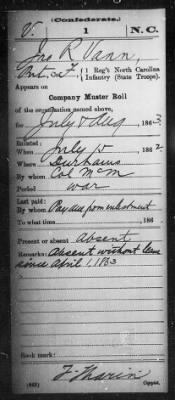 (Confederate.)
V. 1 N.C.
Jas R. Vann,
1 Reg't North Carolina
Infantry (State Troops).
Appears on
Company Muster Roll
of the organization named above,
for July & Aug, 1863
Enlisted:
When July 15, 1862
Where Durhams
By whom Col McM
Period war
Last paid:
By whom Pay due from enlistment
To what time , 186 .
Present or absent Absent
Remarks: Absent without leave
since April 1, 1863
Book mark:
Copyist.